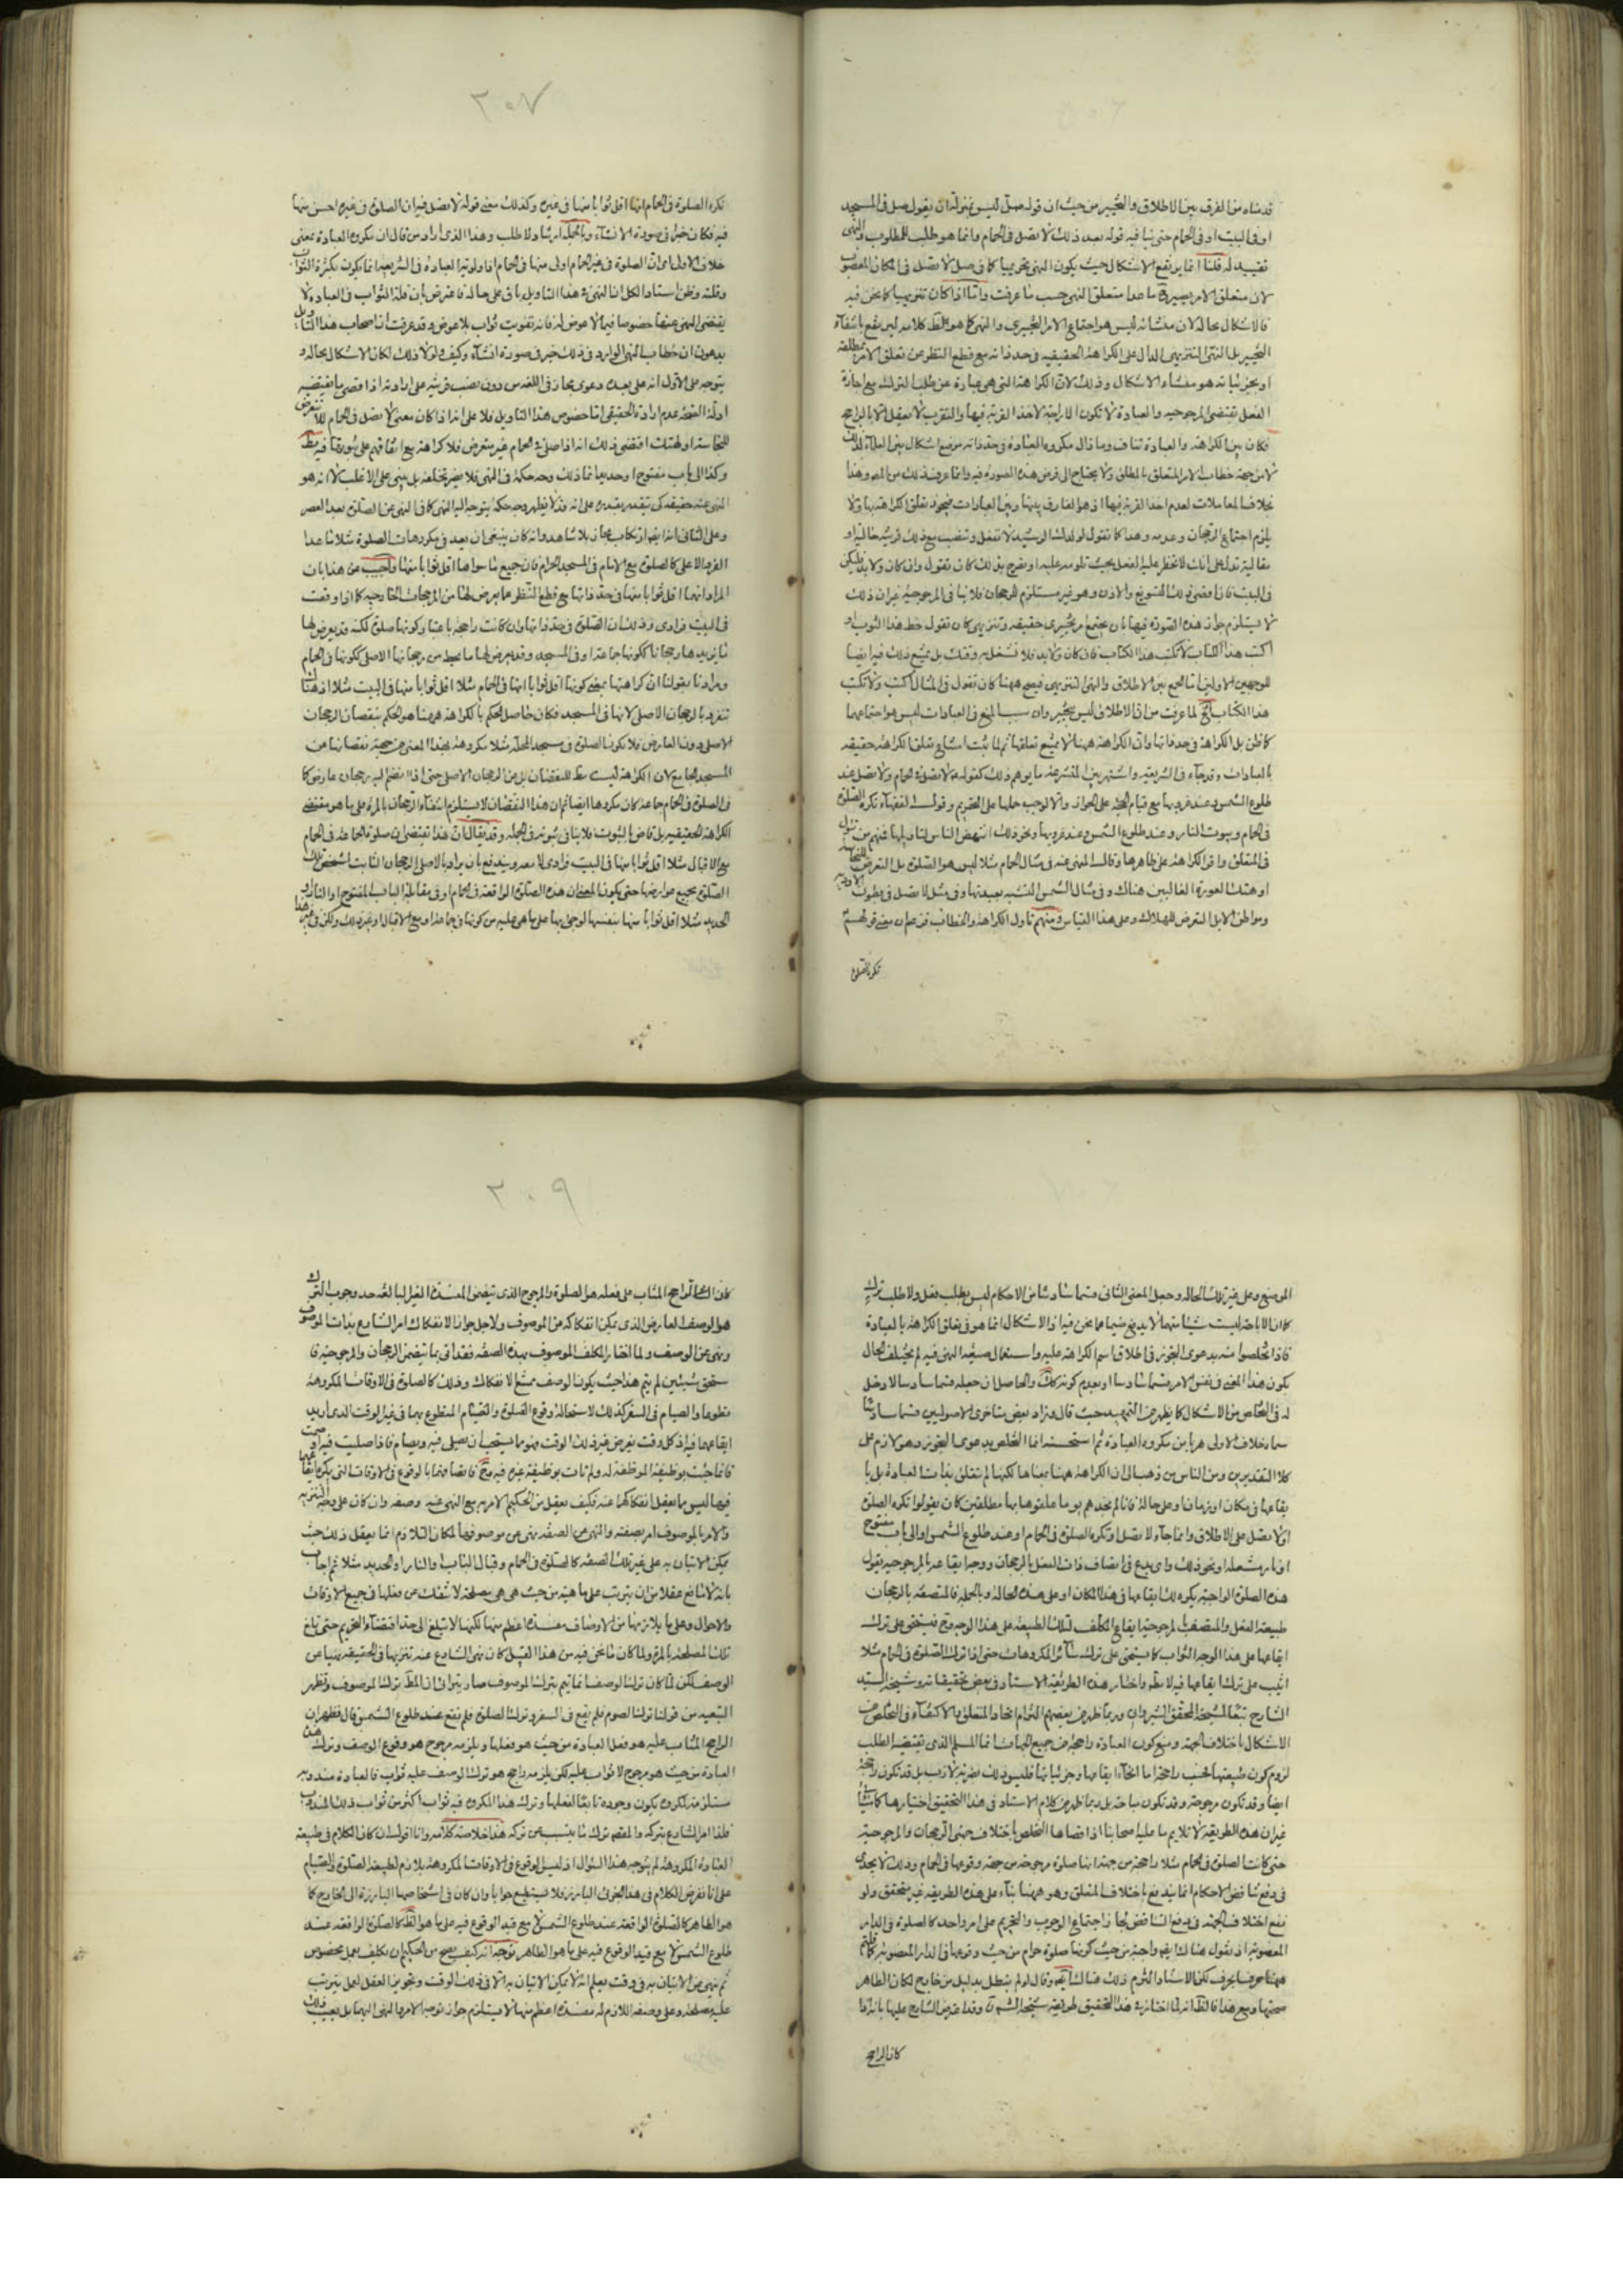 قدمناه من الفرق بين الاطلاق والتخيير من حيث ان قوله صل ليس بمنزلة ان يقول صل في المسجد
او في البيت او في الحمام حتى ينافيه قوله بعد ذلك لا تصل في الحمام وانما هو طلب للمطلوب والنهى
تقييد له قلنا انما يرتفع الاشكال حيث يكون النهى تحريميا كما في صل لا تصل في المكان المغصوب
لان متعلق الامر يصير ماعدا متعلق النهى حسب ما عرفت واما اذا كان تنزيهيا كما نحن فيه
فالاشكال بحاله لان منشائه ليس هو اجتماع الامر التخييري والنهى كما هو الظ كلامه ليرتفع بانتفاء
التخيير بل النهى التنزيهى الدال على الكراهة الحقيقيه في حد ذاته مع قطع النظر عن تعلق الامر بمطلقه
او بجزئياته هو منشاء الاشكال وذلك لان الكراهة التي هى عبارة عن طلب الترك مع اجازة
الفعل تقتضى المرجوحيه والعبادة لا تكون الا راجحة لاخذ القربة فيها والتقرب لا يعقل الا بالراجح
فكان بين الكراهة والعبادة تناف وما زال مكروه العبادة في حد ذاته موضع اشكال بين العلماء لذلك
لا من جهة خطاب الامر المتعلق بالمطلق ولا يحتاج الى فرض هذه الصورة فيه وانما عرف ذلك من
بخلاف المعاملات لعدم اخذ القربة فيها اذ هو الفارق بينها وبين العبادات فيجوز تعلق الكراهة بها ولا
يلزم اجتماع الرجحان وعدمه وهذا كما تقول لولدك الرشيد لا تفعل وتنصب مع ذلك قرينة حالية او
مقالية تدل على انك لا تحظر عليه الفعل بحيث تلومه عليه او تصرح بذلك كان تقول وان كان ولابد فليكن
في البيت فاذا قضى ذلك التسويغ والاذن وهو غير مستلزم للرجحان فلا ينافي المرجوحية غير ان ذلك
لا يستلزم جواز هذه الصورة فيها بان يجتمع امر تخييرى حقيقة وتنزيهى كان تقول خط هذا الثوب او
اكتب هذا الكتاب لا تكتب هذا الكتاب فان كان ولابد فلا تشغل به وقتك بل يمتنع ذلك فيها ايضا
للوجهين الاولين اما الجمع بين الاطلاق والنهى التنزيهى فيصح ههنا كان تقول في المثال اكتب ولا تكتب
هذا الكتاب لما عرفت من ان الاطلاق ليس بتخيير وان سبب المنع في العبادات ليس هو اجتماعهما
كما ظن بل الكراهة في حد ذاتها وان الكراهة ههنا لا يمتنع تعلقها ثم لما ثبت امتناع تعلق الكراهة حقيقة
بالعبادات وقد جاء في الشريعة واشتهر بين المتشرعة ما يوهم ذلك كقوله لا تصل في الحمام ولا تصل عند
طلوع الشمس وعند غروبها مع قيام الحجة على الجواز والا لوجب حملها على التحريم وقولـ الفقهاء تكره الصلوة
في الحمام وبيوت النار وعند طلوع الشمس وعند غروبها ونحو ذلك انتهض الناس لتاويلها فمنهم من تاول
في المتعلق واقر الكراهة على ظاهرها وقال المنهى عنه في مثال الحمام مثلا ليس هو الصلوة بل التعرض للنجاسة
او هتك العورة الغالبين هناك وفي مثال الشمس التشبه بعبدتها وفي مثل لا تصل في بطون الاودية
ومواطن الابل التعرض للهلاك وعلى هذا القياس ومنهم تاول الكراهة والخطاب فزعم ان معنى قولهم
تكره الصلوة
٢٠٧
تكره الصلوة في الحمام انها اقل ثوابا منها في غيره وكذلك معنى قوله لا تصل فيه ان الصلوة في غيره احسن منها
فيه فكان خبرا في صورة الانشاء وبالجمله ارشاد لا طلب وهذا الذى اراد من قال ان مكروه العبادة بمعنى
خلاف الاولى اى ان الصلوة في غير الحمام اولى منها في الحمام اذ اولوية العبادة في الشريعة انما تكون بكثرة الثواب
وقلته وظن استاد الكل ان النهى في هذا التاويل باق على حاله فاعترض بان قلة الثواب في العبادة لا
يقتضى النهى عنها خصوصا فيما لا عوض له فانه تفويت ثواب بلا عوض وقد عرفت ان اصحاب هذا التاويل
يدعون ان خطاب النهى الوارد في ذلك خبر في صورة انشاء وكيف ولولا ذلك لكان الاشكال بحاله و
يتوجه على الاول انه على بعده دعوى مجاز في اللغة من دون نصب قرينة على ارادته اذ اقصى ما يقتضيه
ادلة الصحة عدم ارادة الحقيقى اما خصوص هذا التاويل فلا على انه اذا كان معنى لا تصل في الحمام لا تتعرض
للنجاسة او لهتك اقتضى ذلك انه اذا صلى في الحمام غير متعرض فلا كراهة مع اتفاقهم على ثبوتها فيه
وكذا الى باب مفتوح او حديد انما ذلك وجه حكمة في النهى فلا يضر تخلفه بل يبنى على الاغلب لا انه هو
المنهى عنه حقيقه كى يتقيد بقيده على انه قد لا يظهر وجه حكمة يتوجه اليه النهى كما في النهى عن الصلوة بعد العصر
وعلى الثاني انه ايضا ارتكاب مجاز بلا شاهد وانه كان ينبغى ان يعد في مكروهات الصلوة مثلا ما عدا
الفرد الاعلى كالصلوة مع الامام في المسجد الحرام فان جميع ما سواها اقل ثوابا منها واجيب عن هذا بان
المراد انها اقل ثوابا منها في حد ذاتها مع قطع النظر عما يعرض لها من المرجحات الخارجيه كما اذا وقعت
في البيت فرادى وذلك ان الصلوة في حد ذاتها وان كانت راجحة باعتبار كونها صلوة لكنه قد يعرض لها
ما يزيدها رجحانا ككونها جماعة او في المسجد وقد يعرض لها ما يحط من رجحانها الاصلى ككونها في الحمام
ومرادنا بقولنا ان كراهتها بمعنى كونها اقل ثوابا انها في الحمام مثلا اقل ثوابا منها في البيت مثلا اذ هناك
تنفرد بالرجحان الاصلى لا انها في المسجد فكان حاصل الحكم بالكراهة ههنا هو الحكم بنقصان الرجحان
الاصلى دون العارض فلا يكون الصلوة في مسجد المحلة مثلا مكروهة بهذا المعنى من جهة نقصانها عن
المسجد الجامع لان الكراهة ليست للنقصان بل عن الرجحان الاصلى حتى اذا انضم اليه رجحان عارض كما
في الصلوة في الحمام جماعة كان مكروها ايضا ثم ان هذا النقصان لا يستلزم انتفاء الرجحان بالمرة على ما هو مقتضى
الكراهة الحقيقيه بل قاض بالثبوت فلا ينافي ثبوته في الجمله وقد يقال ان هذا يقتضى ان صلوة الجماعة في الحمام
مع الاقبال مثلا اقل ثوابا منها في البيت فرادى لا معه ويندفع بان يراد بالاصلى الرجحان الثابت لشخص تلك
الصلوة بجميع عوارضها حتى يكون المعنى ان هذه الصلوة الواقعة في الحمام او في مقابلة الباب المفتوح او النار او
الحديد مثلا اقل ثوابا منها بنفسها لو جئ بها على ما هى عليه من كونها في جماعة او مع الاقبال او غير ذلك ولكن في غير هذا
الموضع وعلى غير تلك الحالة وجعل المعنى الثانى قسما سادسا من الاحكام ليس بطلب فعل ولا طلب ترك
كما ان الاباحة ليست شيئا منهما لا يدفع ضيما عما نحن فيه اذ الاشكال انما هو في تعلق الكراهة بالعبادة
فاذا تخلصوا منه بدعوى التجوز في اطلاق اسم الكراهة عليه واستعمال صيغة النهى فيه لم يختلف الحال
بكون هذا المعنى في نفس الامر قسما سادسا او بعدم كونه كك والحاصل ان جعله قسما سادسا لا دخل
له في التخلص من الاشكال كما يظهر من التمهيد حيث قال وزاد بعض متاخرى الاصوليين قسما سادسا
سماه خلاف الاولى هربا من مكروه العبادة ثم استحسنه انما التخلص بدعوى التجوز وهو لازم على
كلا التقديرين ومن الناس من ذهب الى ان الكراهة ههنا بمعناها لكنها لم تتعلق بذات العبادة بل با
يقاعها في مكان او زمان او على حالة فانا لم نجدهم يوما علقوها بها مطلقين كان يقولوا تكره الصلوة
او لا تصل على الاطلاق وانما جاء لا تصل او تكره الصلوة في الحمام او عند طلوع الشمس او الى باب مفتوح
او نار مشتعلة او نحو ذلك واى بدع في اتصاف ذات الفعل بالرجحان ووجه ايقاعه بالمرجوحيه يقول
هذه الصلوة الواجبة يكره لك ايقاعها في هذا المكان او على هذه الحالة وبالجمله فالمتصف بالرجحان
طبيعة الفعل والمتصف بالمرجوحية ايقاع المكلف لتلك الطبيعة على هذا الوجه وح فيستحق على ترك
ايقاعها على هذا الوجه الثواب كما يستحق على ترك سائر المكروهات حتى اذا ترك الصلوة في الحمام مثلا
اثيب على ترك ايقاعها فيه لا بطء واختار هذه الطريقة الاستاد في بعض تحقيقاته وشيخه السيد
الشارح تبعا لشيخه المحقق الشيروانى وربما ظهر من بعضهم التزام اتحاد المتعلق والاكتفاء في التخلص من
الاشكال باختلاف الجهة ومنع كون العبادة راجحة من جميع الجهات انما المسلم الذى يقتضيه الطلب
لزوم كون طبيعتها لحسب راجحة اما انحاء ايقاعها وجزئياتها فليس ذلك بضربة لازب بل قد تكون راجحة
ايضا وقد تكون مرجوحة وقد تكون مباحة بل ربما ظهر من كلام الاستاد في هذا التحقيق اختيارها كما يتبين
غير ان هذه الطريقة لا تلايم ما عليه اصحابنا اذ اقصاها التخلص باختلاف جهتى الرجحان والمرجوحية
حتى كانت الصلوة في الحمام مثلا راجحة من جهة انها صلوة مرجوحة من جهة وقوعها في الحمام وذلك لا يجدى
في دفع تناقض الاحكام انما يندفع باختلاف المتعلق وهو ههنا بناء على هذه الطريقة غير متحقق ولو
نفع اختلاف الجهة في دفع التناقض لجاز اجتماع الوجوب والتحريم على امر واحد كالصلوة في الدار
المغصوبة اذ نقول هناك ايضا واجبة من حيث كونها صلوة حرام من حيث وقوعها في الدار المغصوبة كما قلتم
ههنا حرفا بحرف لكن الاستاد التزم ذلك هناك وقال لو لم يبطل بدليل من خارج لكان الظاهر
صحتها ومع هذا فالظ انه لما اختاره في هذا التحقيق طريقة شيخه الشريف وقد اعترض الشارح عليها بانه اذا
كان الراجح
٢٠٩
كان الراجح المثاب على فعله هو الصلوة والمرجوح الذى يتضمن المفسدة الغير البالغة حد وجوب الترك
هو الوصف العارض الذى يمكن انفكاكه عن الموصوف ولاجل جواز الانفكاك امر الشارع بذات الموصوف
ونهى عن الوصف ولما اختار المكلف الموصوف بهذه الصفة فقد اتى بما يتضمن الرجحان والمرجوحية فا
ستحق شيئين لم يتم هذا حيث يكون الوصف ممتنع الانفكاك وذلك كالصلوة في الاوقات المكروهة
تطوعا والصيام في السفر كذلك لاستحالة وقوع الصلوة والصيام المتطوع بهما في غير الوقت الذى اريد
ايقاعهما فيه اذ كل وقت يفرض غير ذلك الوقت فهو مما يستحب ان يصلى فيه ويصام فاذا صليت فيه او صمت
فانما جئت بوظيفة الموظفة له ولم تات بوظيفة غيره فيه فاتصافهما بالوقوع في الاوقات التى يكره ايقاعهما
فيها ليس مما يعقل انفكاكهما عنه فكيف يعقل من الحكيم الامر به مع النهى عن وصفه وان كان على وجه التنزيه
والامر بالموصوف امر بصفته والنهى عن الصفة نهى عن موصوفها لمكان التلازم انما يعقل ذلك حيث
يمكن الاتيان به على غير تلك الصفة كالصلوة في الحمام وقبال الباب والنار او الحديد مثلا ثم اجاب
بانه لا مانع عقلا من ان يترتب على ماهية من حيث هى هى مصلحة لا تنفك عن فعلها في جميع الاوقات
والاحوال وعلى ما يلازمها من الاوصاف مفسدة اعظم منها لكنها لا تبلغ الى حد اقتضاء التحريم حتى تلغ
تلك المصلحة بالمرة ولما كان ما نحن فيه من هذا القبيل كان نهى الشارع عنه تنزيها في الحقيقة نهيا عن
الوصف لكن لما كان ترك الوصف انما يتم بترك الموصوف صار يترائى ان المط ترك الموصوف ونظير
التبعيد من قولنا ترك الصوم فلم يقع في السفر وترك الصلوة فلم تقع عند طلوع الشمس قال فظهر ان
الراجح المثاب عليه هو فعل العبادة من حيث هو فعلها ويلزمه مرجوح هو وقوع الوصف وترك هذه
العبادة من حيث هو مرجوح لا ثواب عليه لكن يلزمه راجح هو ترك الوصف عليه ثواب فالعبادة مندوبة
مستلزمة لمكروه يكون وجوده تابعا لفعلها وترك هذا المكروه فيه ثواب اكثر من ثواب ذلك المندوب
فلذا امر الشارع بتركه والمقصود ترك ما يتسبب من تركه هذا خلاصة كلامه وانا اقول ان كان الكلام في طبيعة
العبادة المكروهة لم يتوجه هذا السؤال اذ ليس الوقوع في الاوقات المكروهة بلازم لطبيعة الصلوة والصيام
على انا نفرض الكلام في هذا الجزئى البارز فلا نستطيع جوابا وان كان في اشخاصها البارزة الى الخارج كما
هو الظاهر كالصلوة الواقعة عند طلوع الشمس لا مع قيد الوقوع فيه على ما هو الظ كالصلوة الواقعة عند
طلوع الشمس لا مع قيد الوقوع فيه على ما هو الظاهر توجه انه كيف يصح من الحكيم ان يكلف بعمل مخصوص
ثم ينهى عن الاتيان به في وقت يعلم انه لا يمكن الاتيان به الا في ذلك الوقت وتجويز العقل لعمل يترتب
عليه مصلحة وعلى وصفه اللازم له مفسدة اعظم منها لا يستلزم جواز توجه الامر والنهى اليهما بل يعيب ذلك